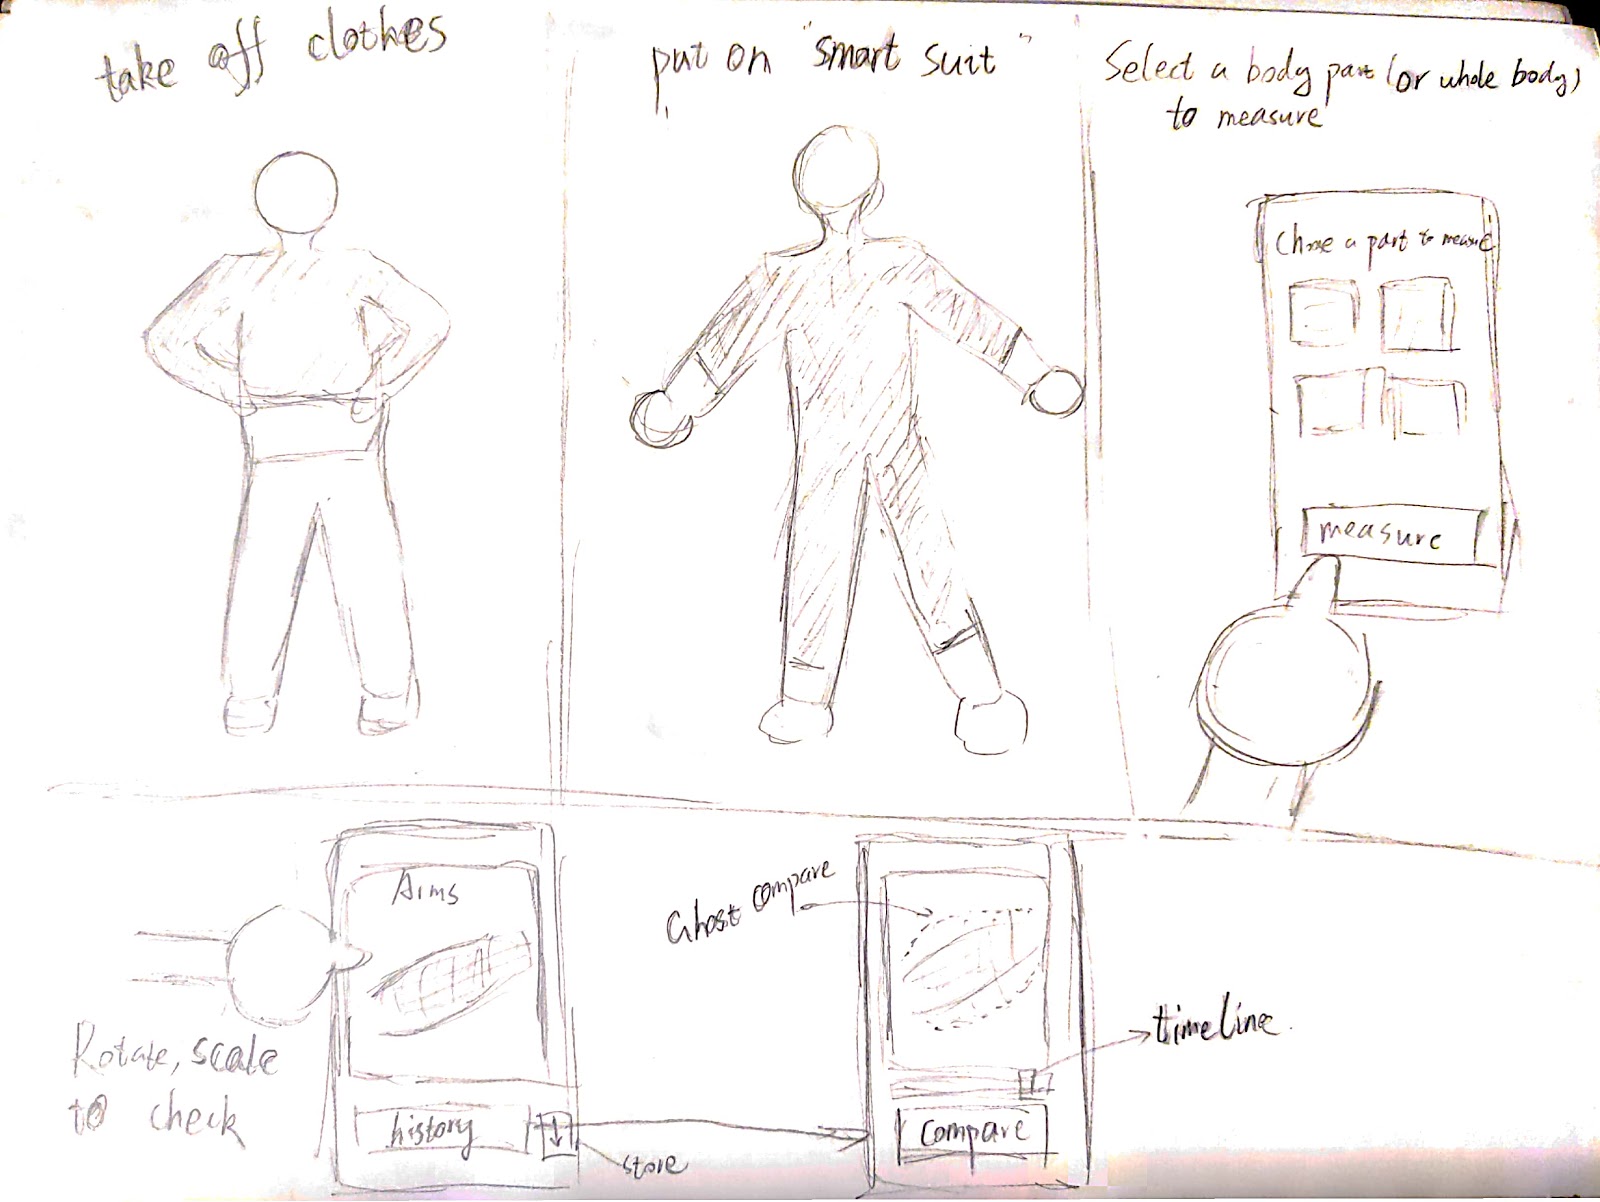 take off clothes
put on "smart suit"
Select a body part (or whole body)
to measure
Choose a part to measure
measure
Arms
Rotate, scale
to check
history
store
Ghost compare
timeline
compare